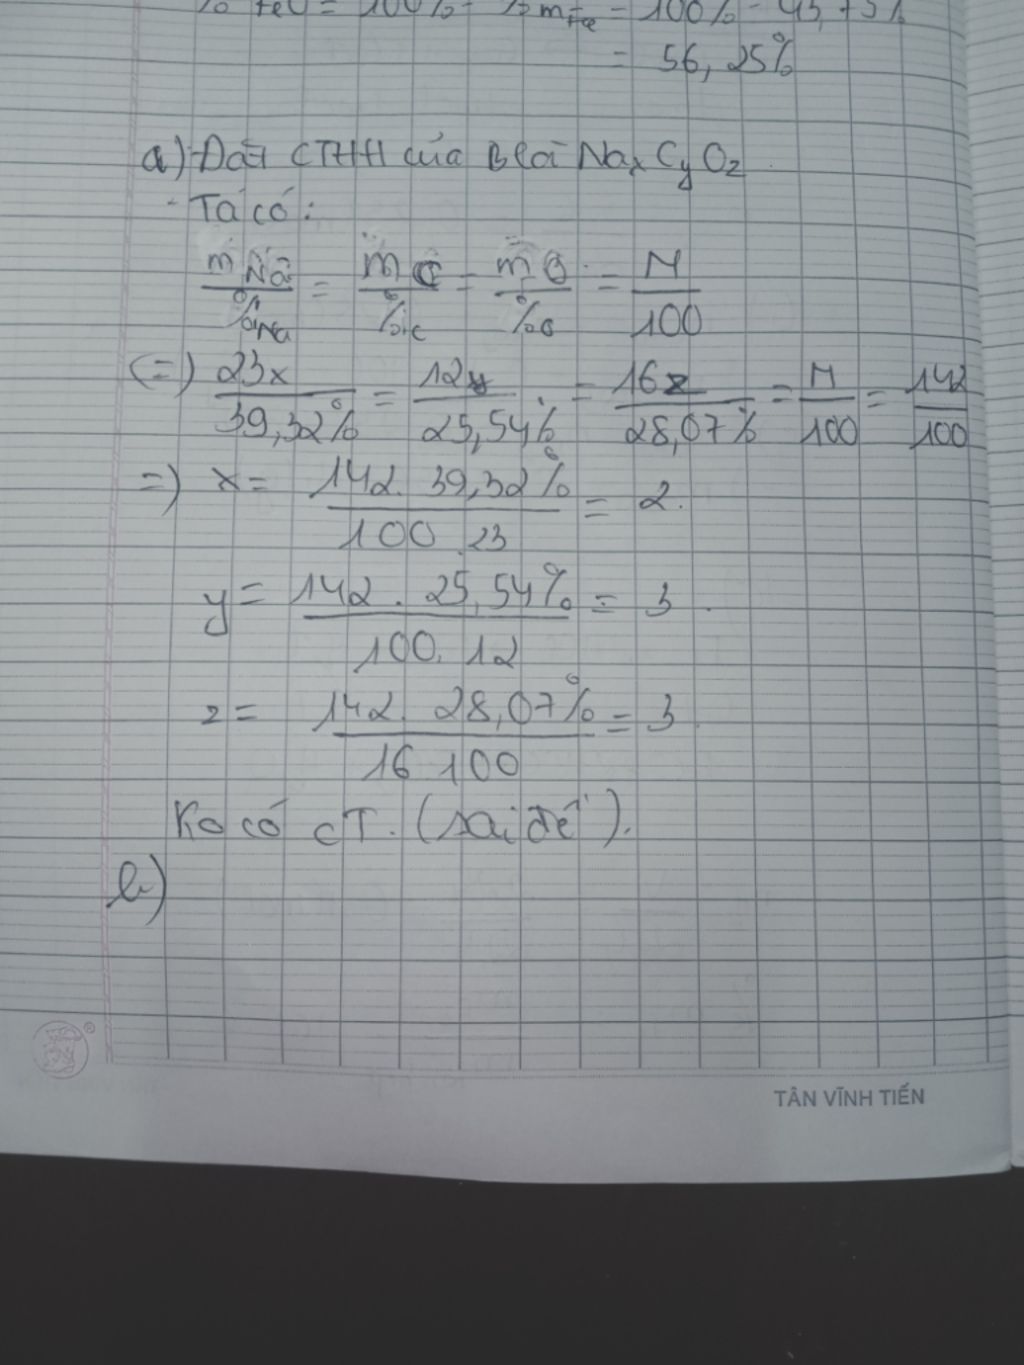 % FeO = 100% - % mFe = 100% - 43,75%
= 56,25%
a) Đặt CTHH của B là NaxCyOz
- Ta có:
mNa/%Na = mC/%C = mO/%O = M/100
(=) 23x/39,32% = 12y/25,54% = 16z/28,07% = M/100 = 142/100
=) x = 142. 39,32%/100.23 = 2.
y = 142. 25,54%/100.12 = 3.
z = 142. 28,07%/16 100 = 3.
Ko có CT. (sai đề).
b)
TÂN VĨNH TIẾN